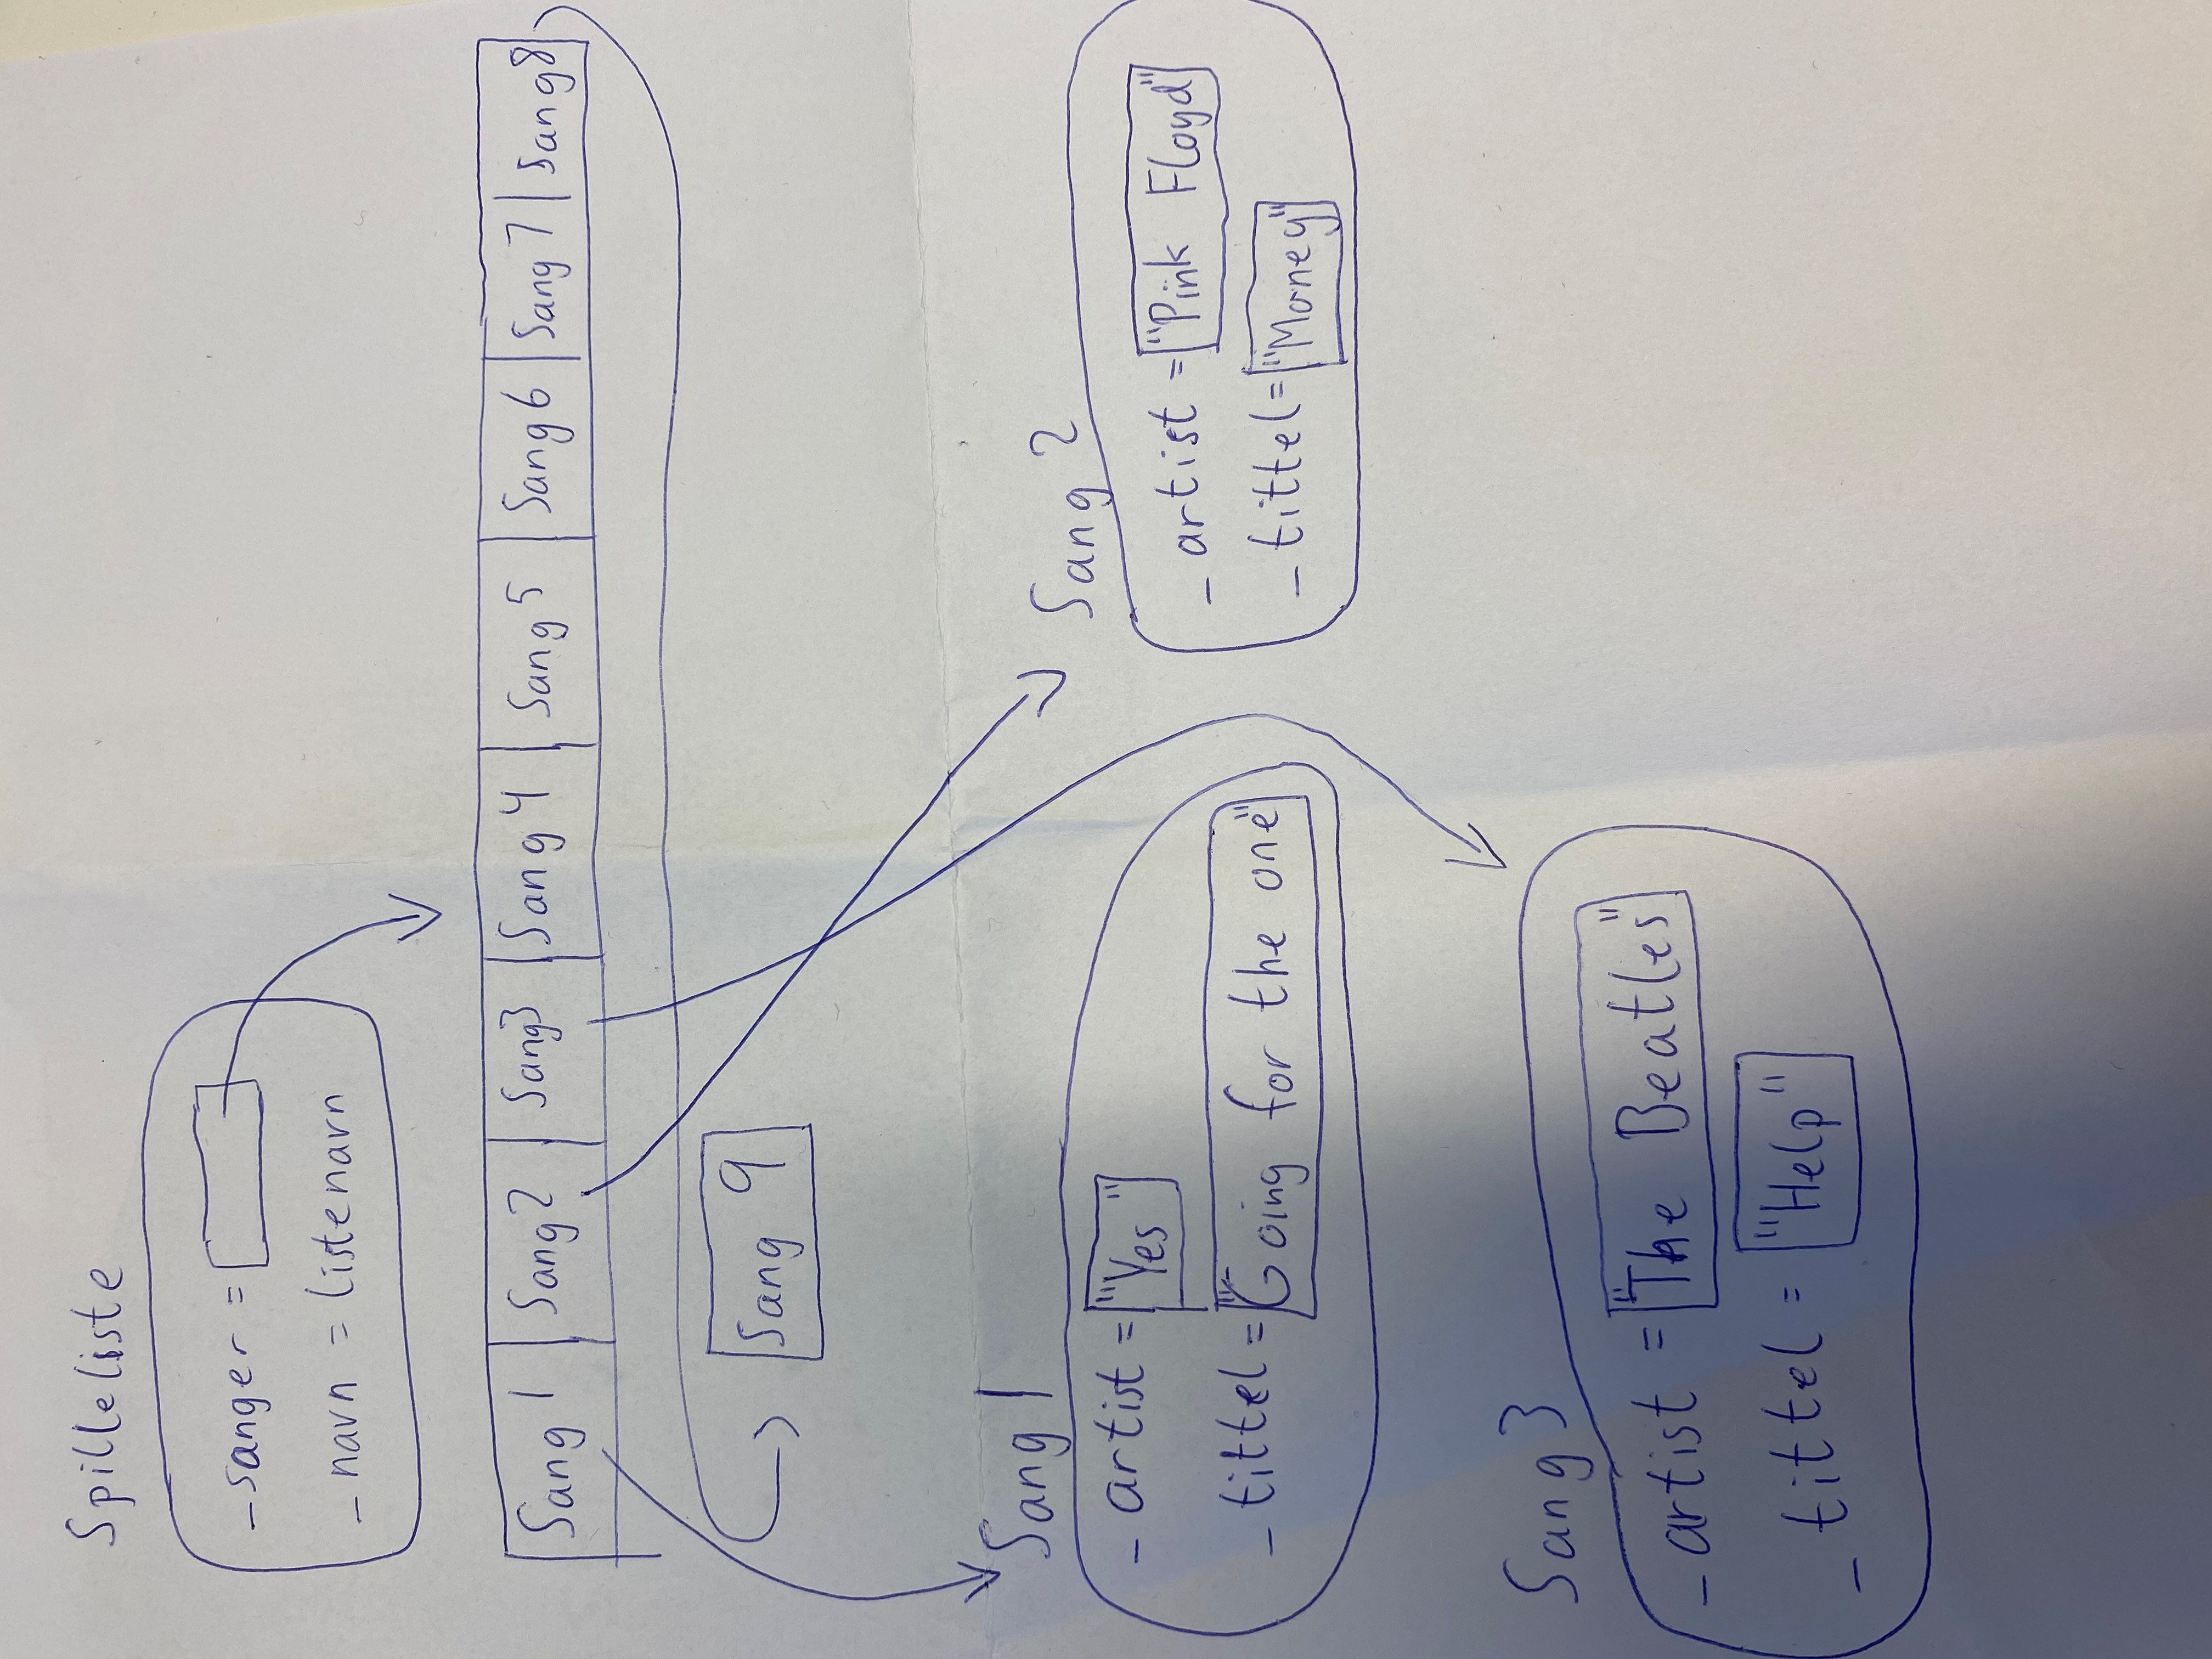 Spilleliste
_sanger =
_navn = listenavn
Sang 1 Sang 2 Sang 3 Sang 4 Sang 5 Sang 6 Sang 7 Sang 8
Sang 9
Sang 1
_artist = "Yes"
_tittel = "Going for the one"
Sang 2
_artist = "Pink Floyd"
_tittel = "Money"
Sang 3
_artist = "The Beatles"
_tittel = "Help"